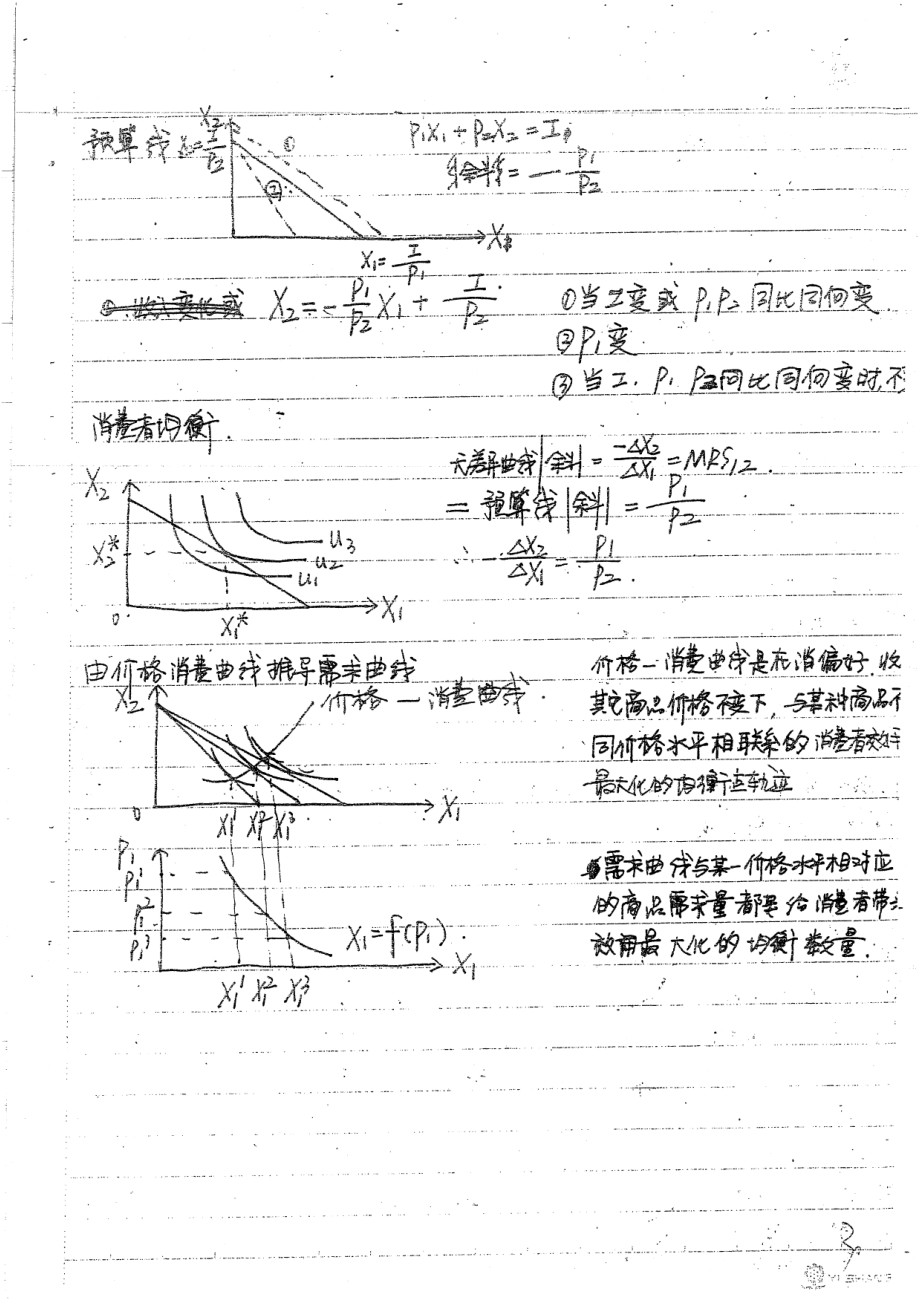 预算线
X₂
X₂=I/P₂
①
②
X₁
X₁=I/P₁
P₁X₁+P₂X₂=I
|斜|=-P₁/P₂
X₂=-P₁/P₂X₁+I/P₂
①当I变或P₁P₂同比同向变
②P₁变
③当I.P₁P₂同比同向变时,不
消费者均衡.
X₂
X₂*
U₃
U₂
U₁
0
X₁*
X₁
无差异曲线|斜|=-ΔX₂/ΔX₁=MRS₁₂.
=预算线|斜|=P₁/P₂
∴-ΔX₂/ΔX₁=P₁/P₂.
由价格消费曲线推导需求曲线
X₂
价格-消费曲线.
0
X₁¹ X₁² X₁³
X₁
价格-消费曲线是在消偏好.收
其它商品价格不变下,与某种商品不
同价格水平相联系的消费者效用
最大化的均衡点轨迹
P₁
P₁¹
P₁²
P₁³
X₁=f(P₁).
X₁
X₁¹ X₁² X₁³
需求曲线与某一价格水平相对应
的商品需求量都要给消费者带
效用最大化的均衡数量.